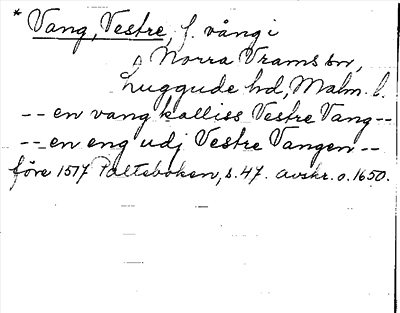 * Vang, Vestre, f. vång i
Norra Vrams sn,
Luggude hd, Malm. l.
-- en vang kalliss Vestre Vang --
-- en eng udj Vestre Vangen --
före 1517 Palteboken, s. 47. Avskr. o. 1650.